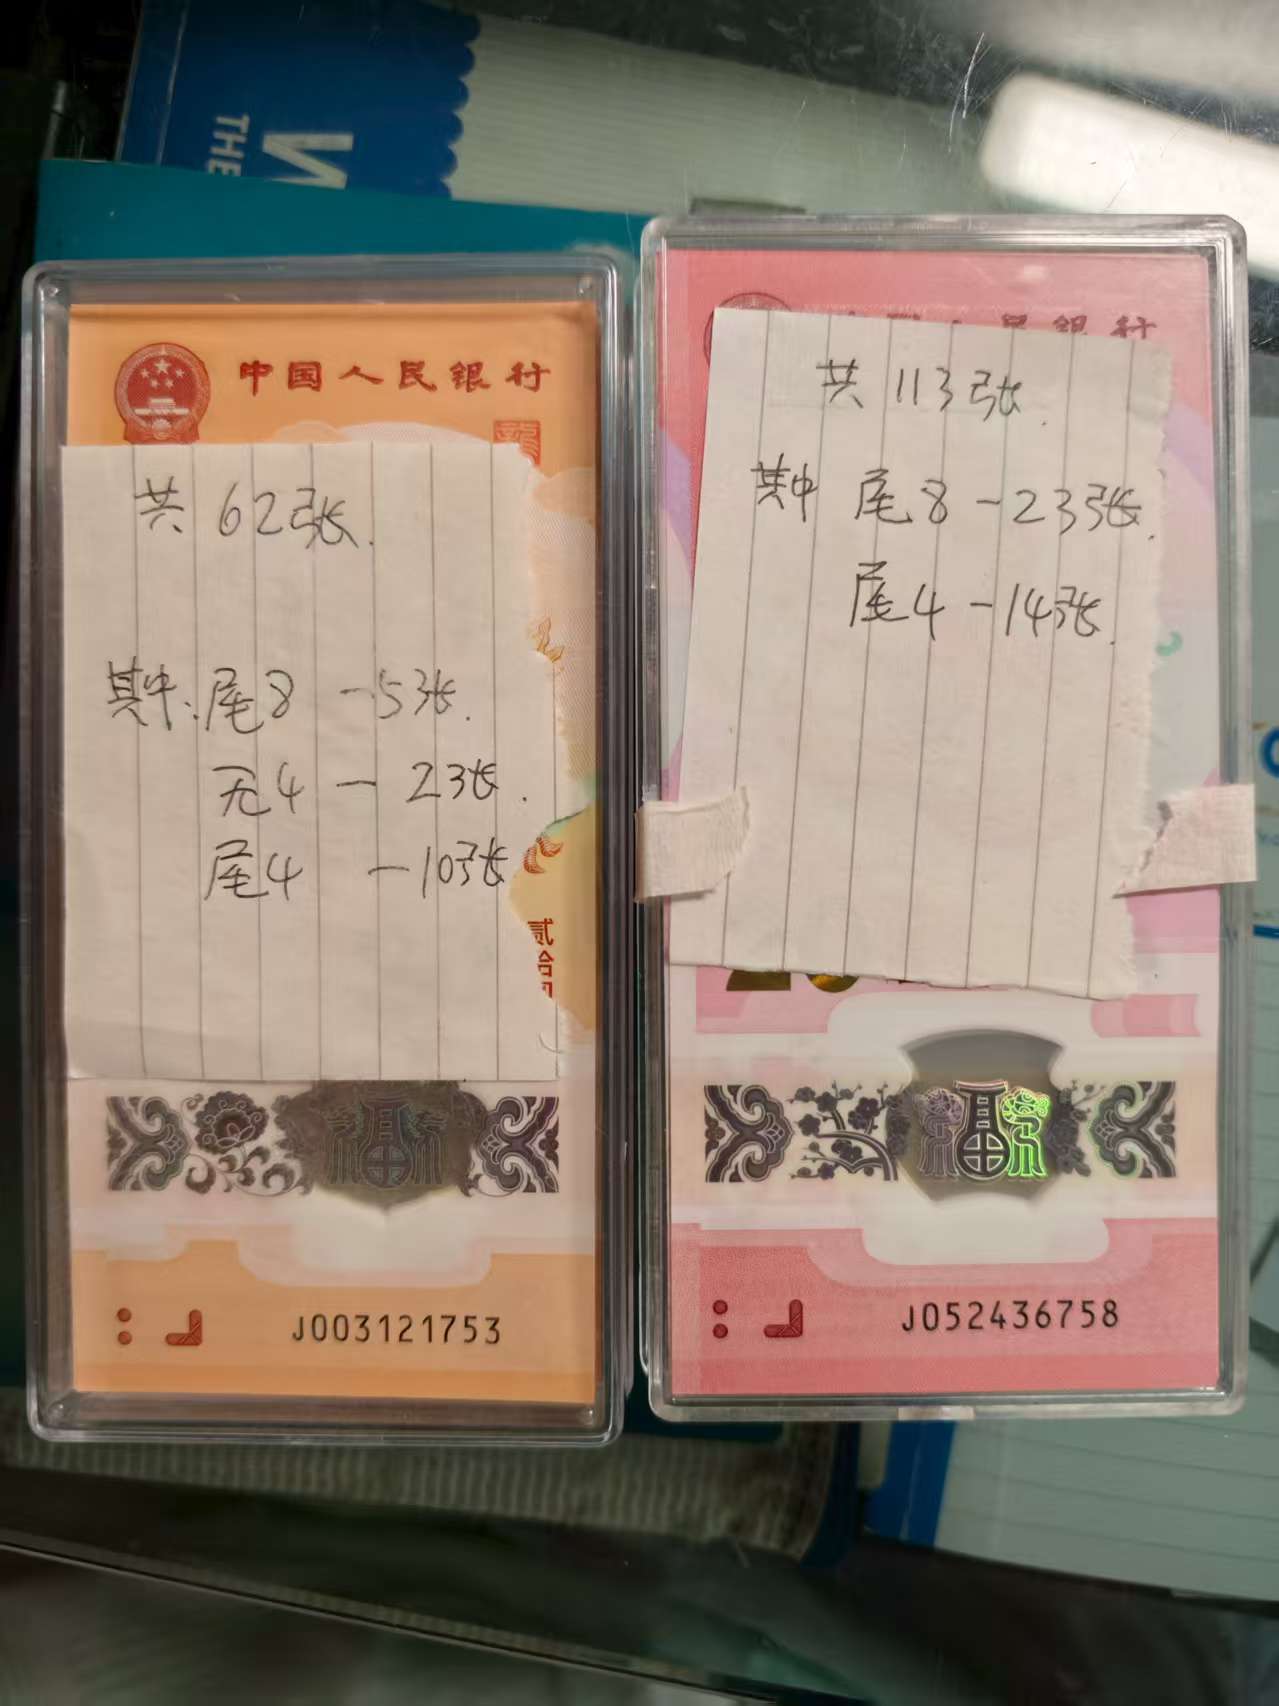 THE
中国人民银行
共 62张.
其中: 尾8 - 5张.
无4 - 23张.
尾4 - 10张
贰拾
J003121753
人民银行
共 113张.
其中 尾8 - 23张.
尾4 - 14张.
20
J052436758